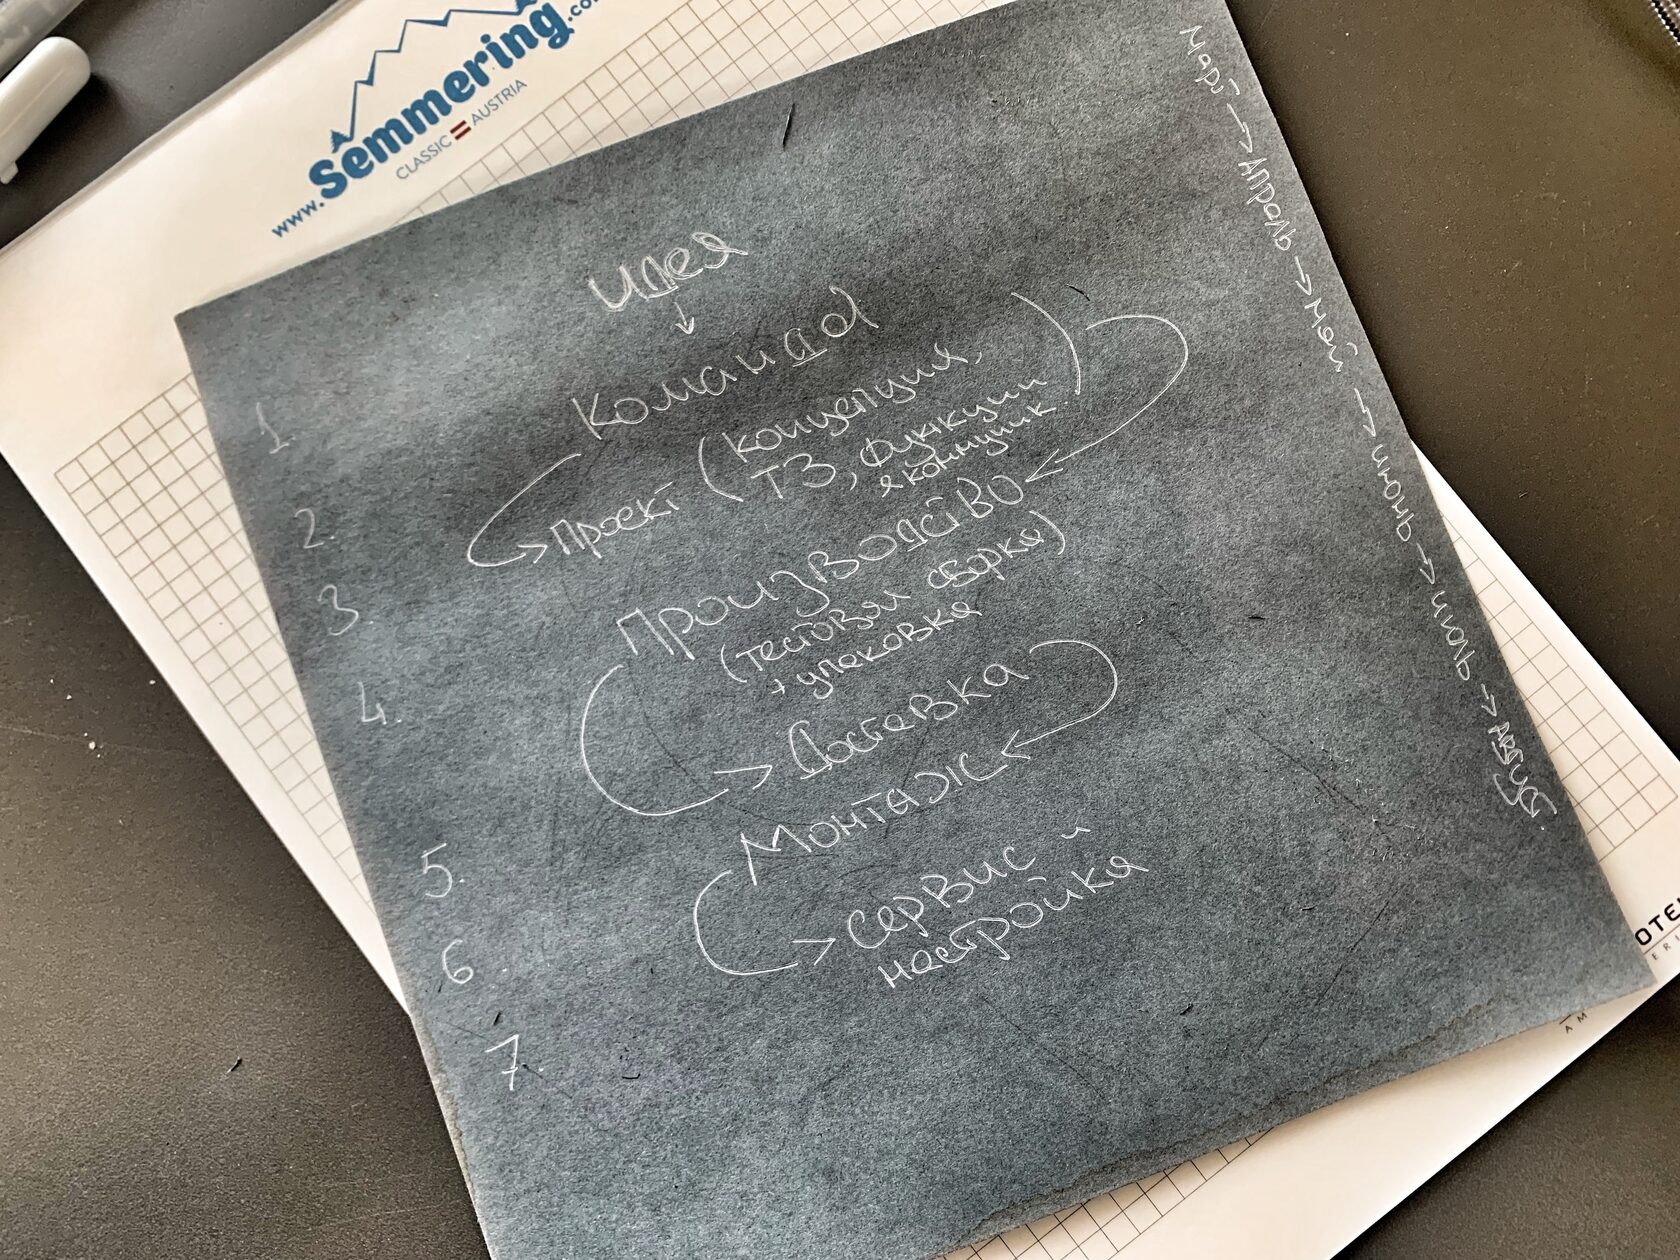 www.Semmering.co
CLASSIC AUSTRIA
идея
↓
1. Команда
2. Проект (концепция,
ТЗ, функции
коммуник
3 Производство
(тестовая сборка)
+ упаковка
4. Доставка
5. Монтаж
6 Сервис и
настройка
7.
Март → Апрель → май → июнь → июль → Август
OTE